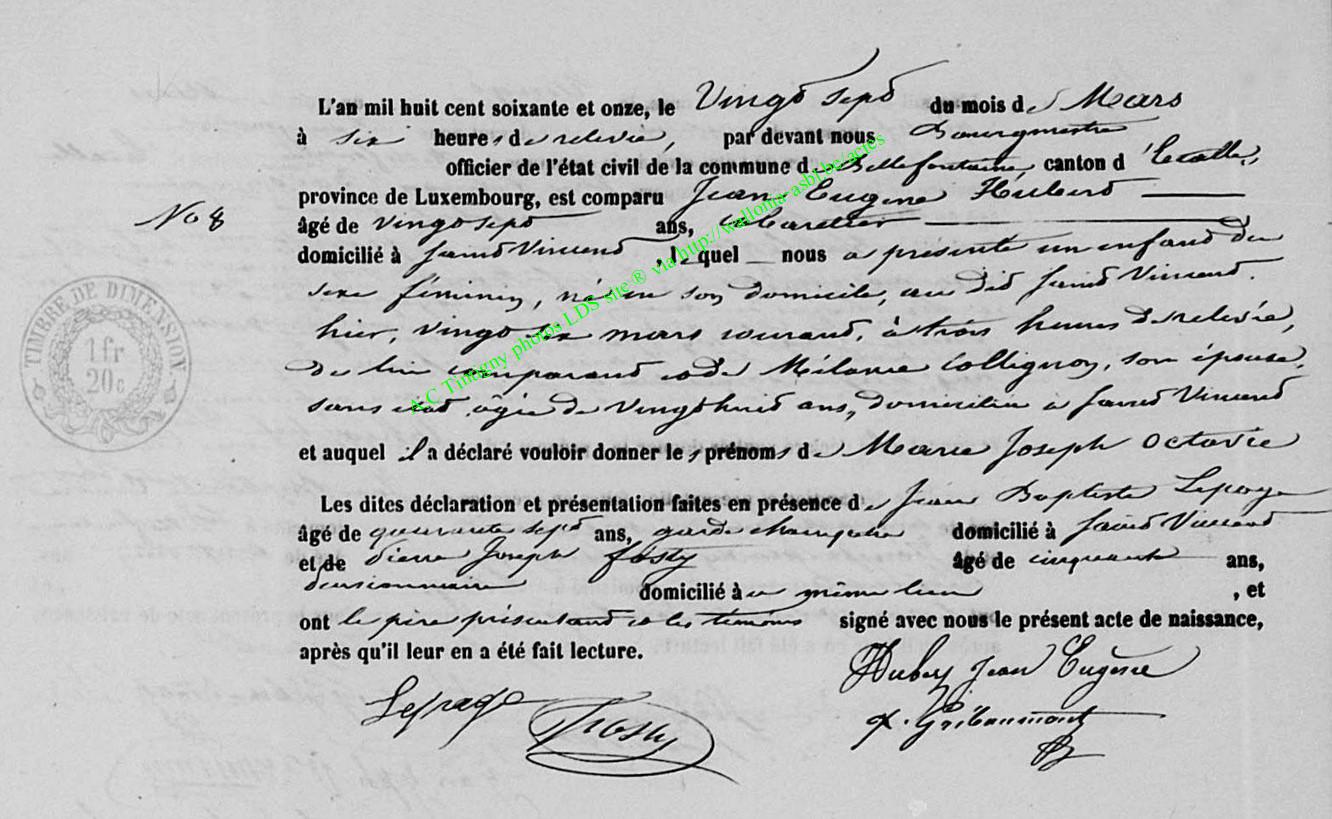 L'an mil huit cent soixante et onze, le Vingt sept du mois de Mars
à six heures de relevée, par devant nous Bourgmestre
officier de l'état civil de la commune de Bellefontaine, canton d'Etalle,
province de Luxembourg, est comparu Jean Eugène Hubert
No 8
âgé de vingt sept ans, cabaretier
domicilié à Saint Vincent, lequel nous a présenté un enfant du
sexe féminin, née en son domicile, au dit Saint Vincent.
hier, vingt six mars courant, à trois heures de relevée,
de lui comparant et de Mélanie Collignon, son épouse,
sans état, âgée de vingt huit ans, domiciliée à Saint Vincent
et auquel il a déclaré vouloir donner les prénoms de Marie Joseph Octavie
Les dites déclaration et présentation faites en présence de Jean Baptiste Lepage
âgé de quarante sept ans, garde champêtre domicilié à Saint Vincent
et de Pierre Joseph Fosty âgé de cinquante ans,
pensionnaire domicilié à u même lieu, et
ont le père présentant et les témoins signé avec nous le présent acte de naissance,
après qu'il leur en a été fait lecture.
Hubert Jean Eugène
Lepage
Fosty
Gribaumont
TIMBRE DE DIMENSION
1 fr
20 c
A-C Timigny photos LDS site ® via http://wallonia-asbl.be/actes